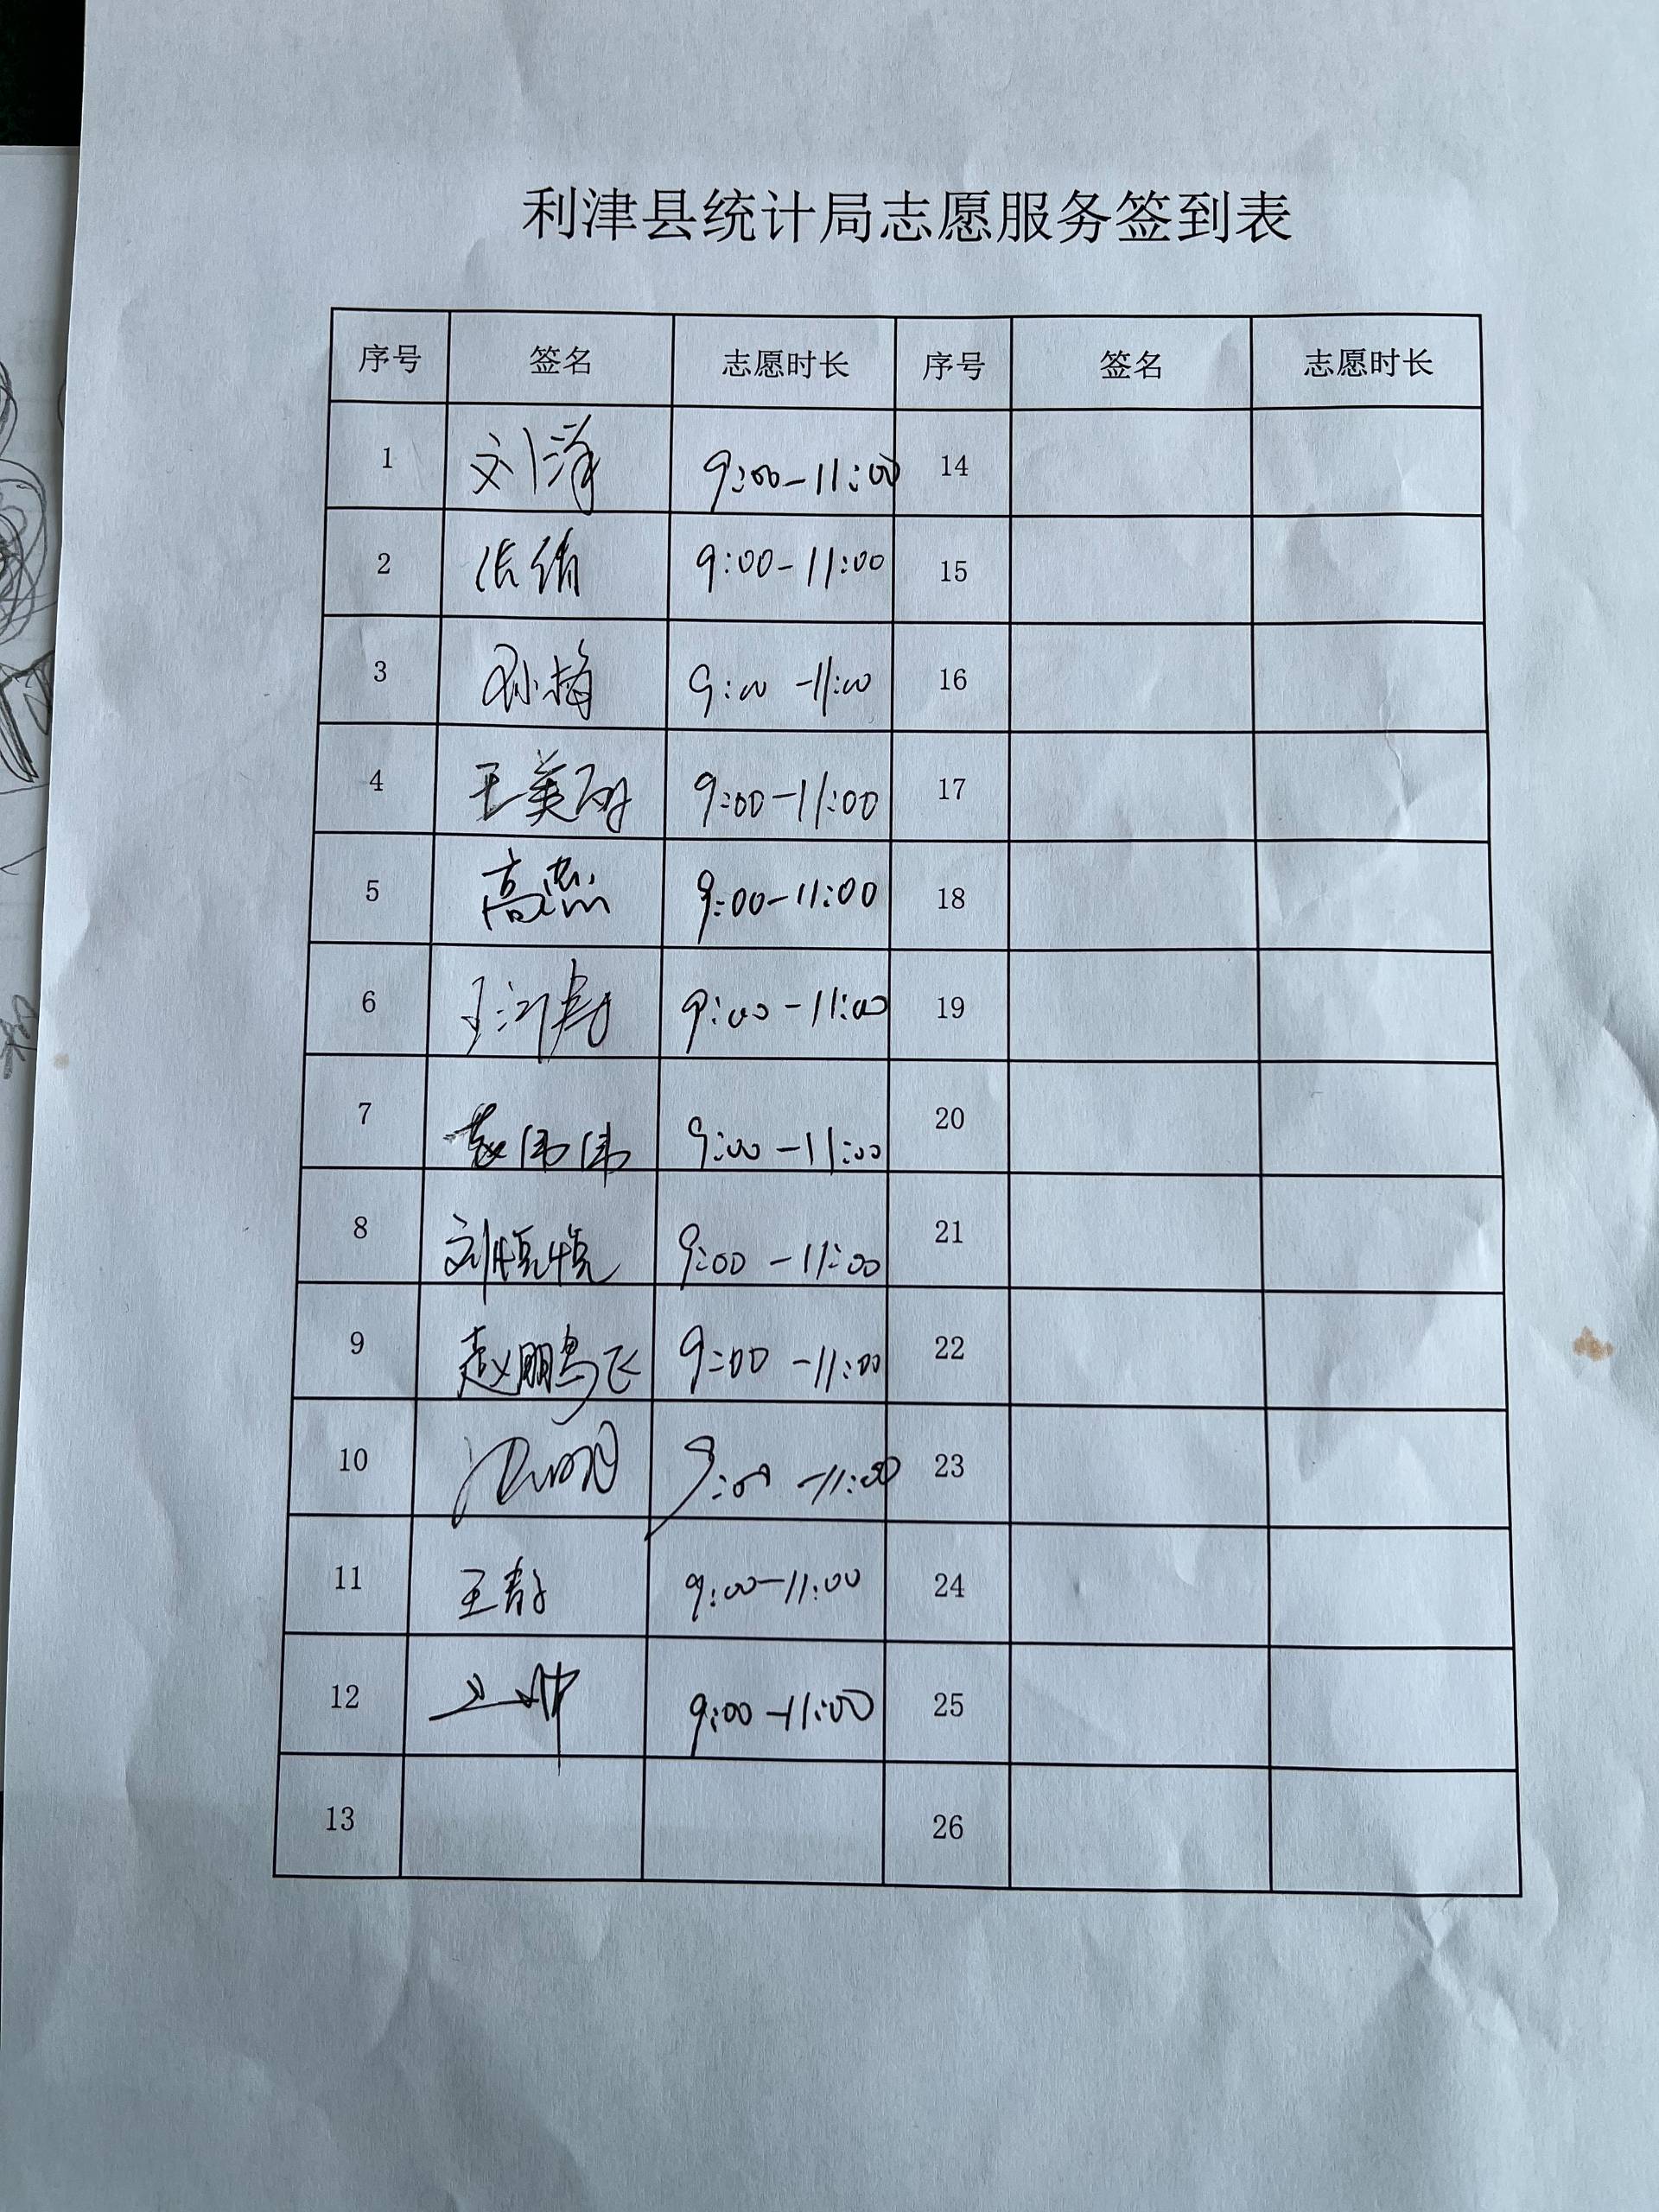 利津县统计局志愿服务签到表
序号 签名 志愿时长 序号 签名 志愿时长
1 刘洋 9:00-11:00 14
2 张倩 9:00-11:00 15
3 孙梅 9:00-11:00 16
4 王美丽 9:00-11:00 17
5 高燕 9:00-11:00 18
6 9:00-11:00 19
7 袁伟伟 9:00-11:00 20
8 刘恒恒 9:00-11:00 21
9 赵鹏飞 9:00-11:00 22
10 9:00-11:00 23
11 王静 9:00-11:00 24
12 9:00-11:00 25
13 26